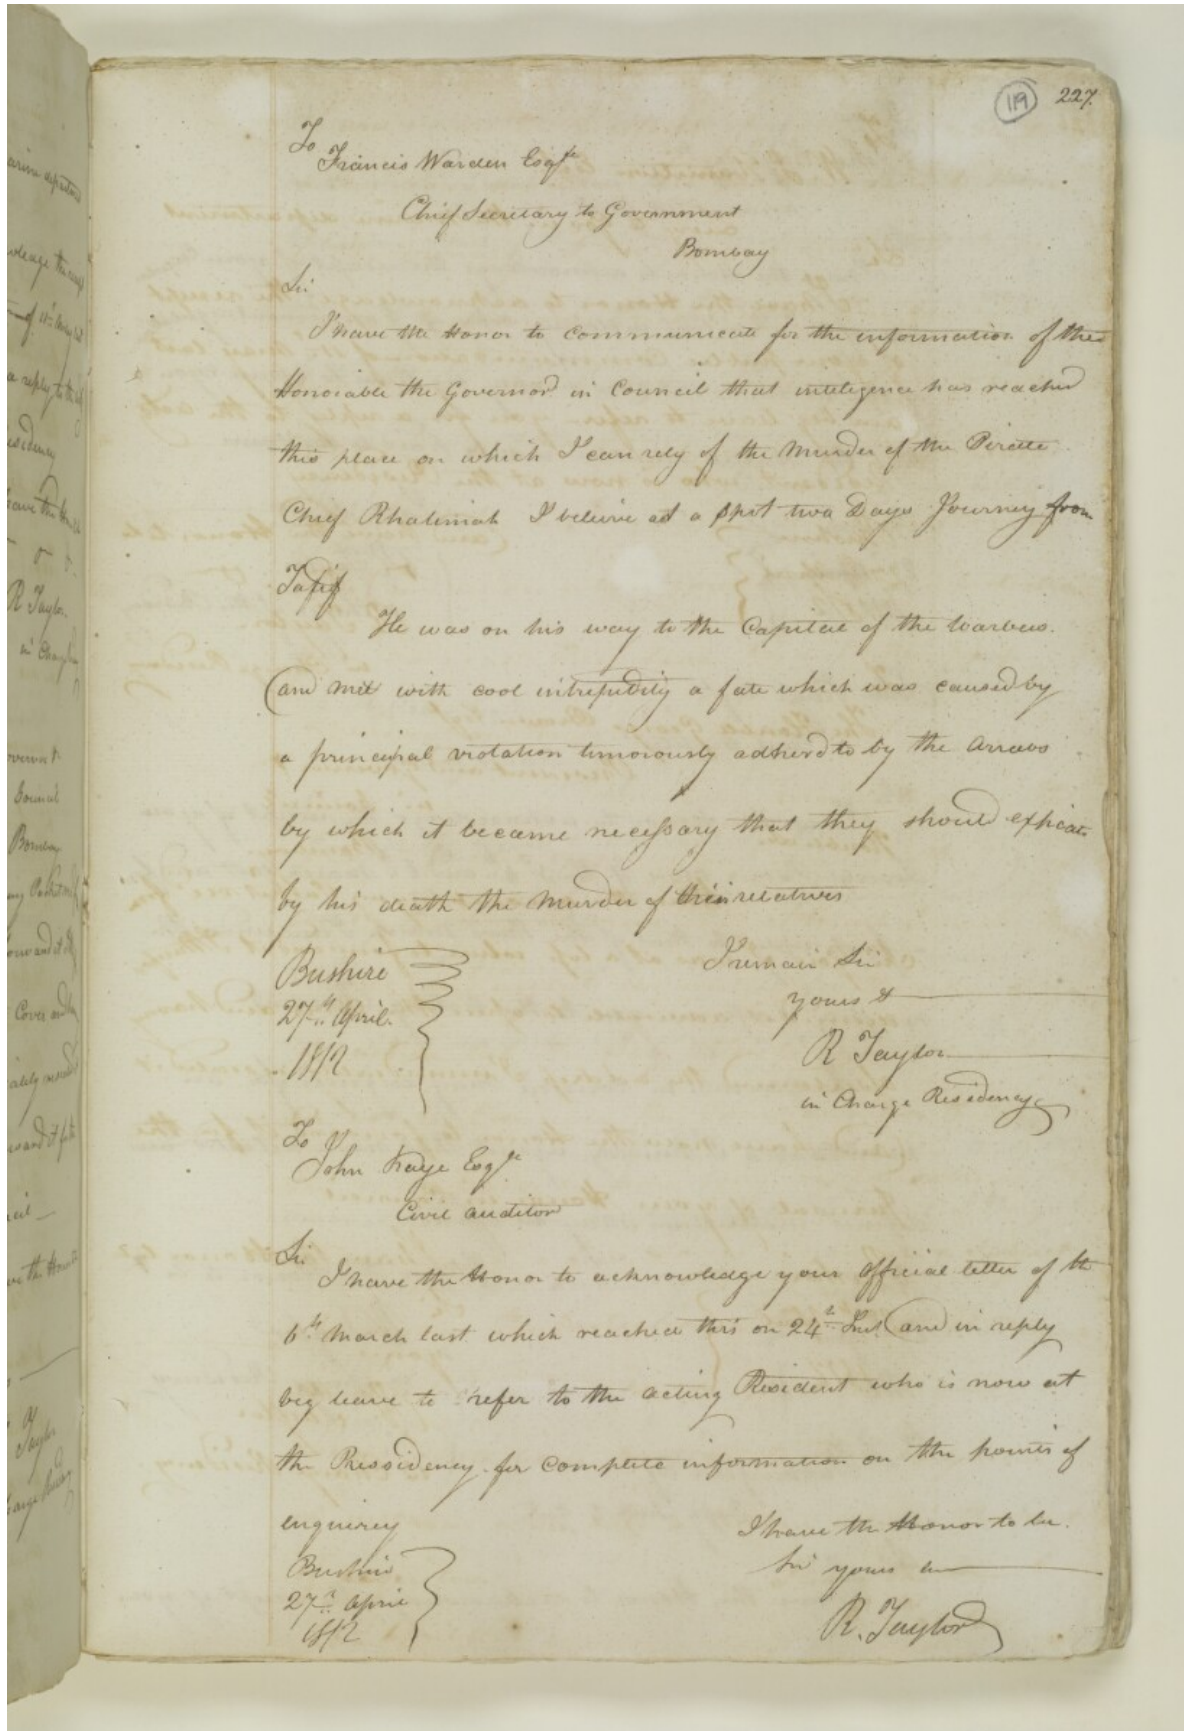 119 227.
To
Francis Warden Esqre
Chief Secretary to Government
Bombay
Sir
I have the Honor to communicate for the information of the
Honorable the Governor in Council that inteligence has reached
this place on which I can rely of the Murder of the Pirate
Chief Rhahmah I beleive at a spot two Days Journey from
He was on his way to the Capital of the
and met with cool intrepidity a fate which was caused by
a principal violation timorously adherd to by the Arrabs
by which it became necessary that they should expiate
by his death the Murder of their relatives
Bushire
27th April
1812
I remain Sir
yours &
R Taylor
in Charge Residency
To
John Kaye Esqre
Civil Auditor
Sir
I have the Honor to acknowledge your official letter of the
6th March last which reached this on 24th Inst and in reply
beg leave to refer to the acting Resident who is now at
the Pressidency for complete information on the points of
enquirey
I have the Honor to be
Sir yours
Bushire
27th April
1812
R. Taylor